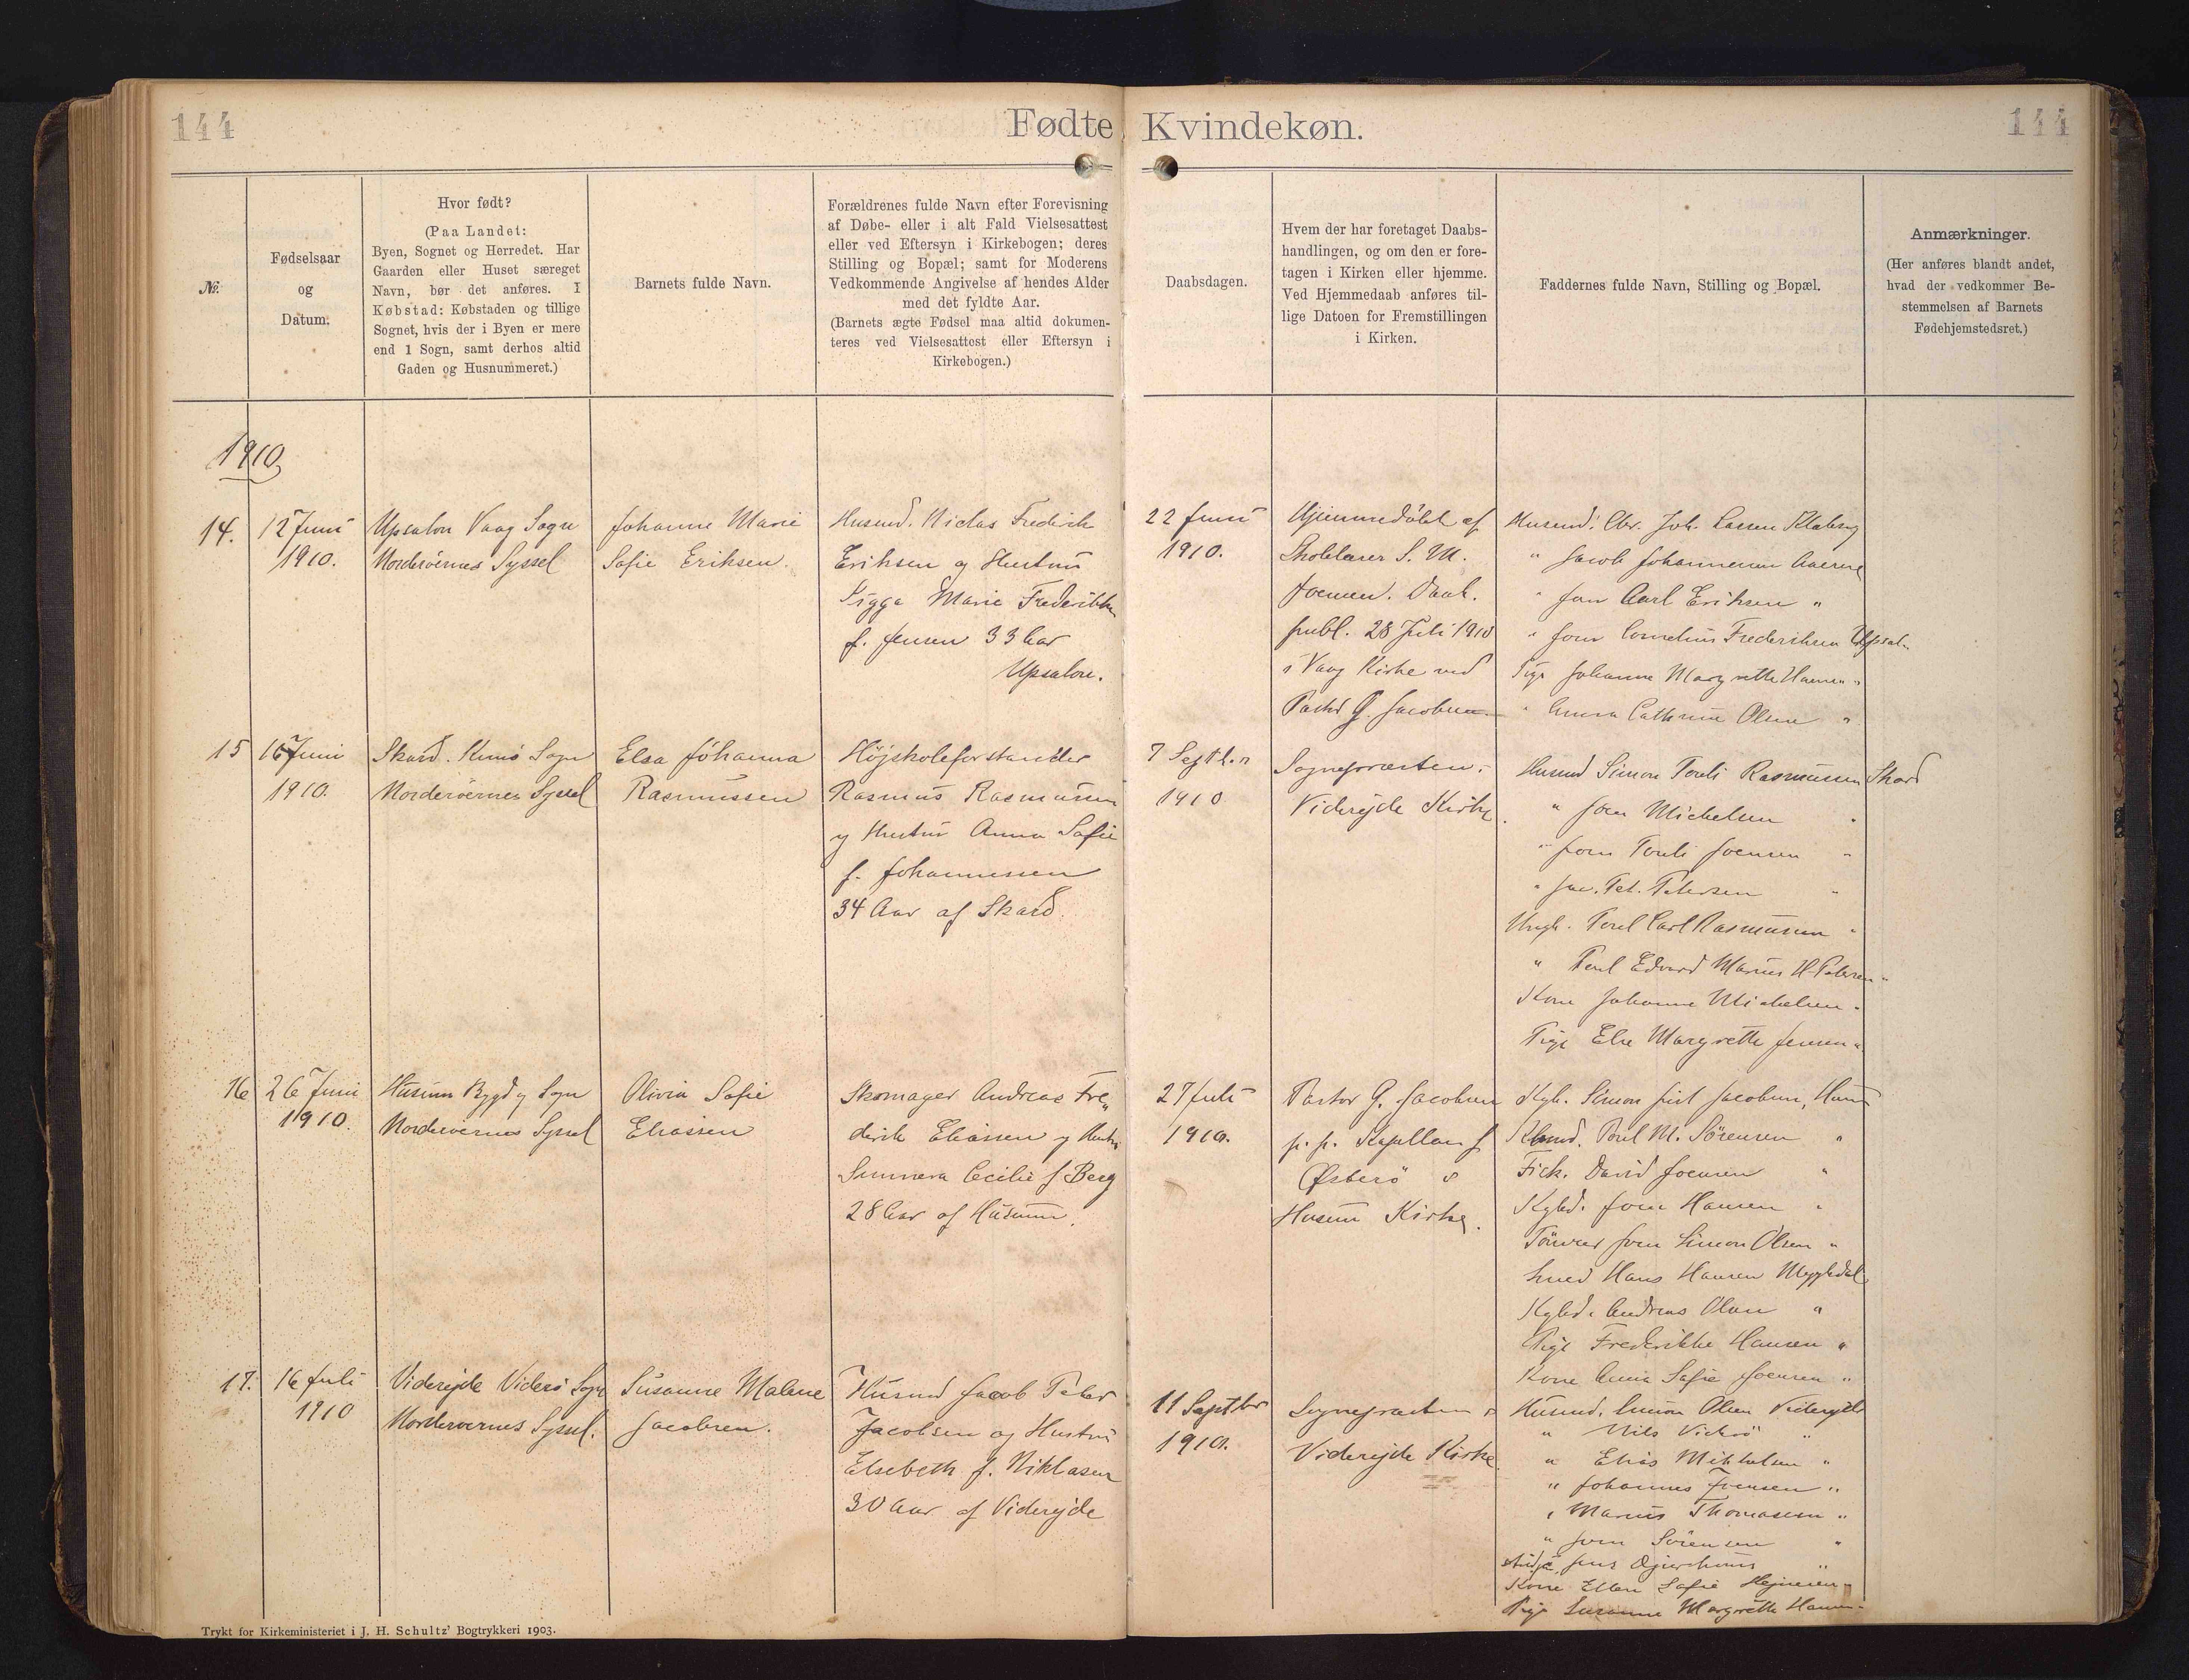 144
Fødte Kvindekøn.
144
№.
Fødselsaar
og
Datum.
Hvor født?
(Paa Landet:
Byen, Sognet og Herredet. Har
Gaarden eller Huset særeget
Navn, bør det anføres. I
Købstad: Købstaden og tillige
Sognet, hvis der i Byen er mere
end 1 Sogn, samt derhos altid
Gaden og Husnummeret.)
Barnets fulde Navn.
Forældrenes fulde Navn efter Forevisning
af Døbe- eller i alt Fald Vielsesattest
eller ved Eftersyn i Kirkebogen; deres
Stilling og Bopæl; samt for Moderens
Vedkommende Angivelse af hendes Alder
med det fyldte Aar.
(Barnets ægte Fødsel maa altid dokumen-
teres ved Vielsesattest eller Eftersyn i
Kirkebogen.)
Daabsdagen.
Hvem der har foretaget Daabs-
handlingen, og om den er fore-
tagen i Kirken eller hjemme.
Ved Hjemmedaab anføres til-
lige Datoen for Fremstillingen
i Kirken.
Faddernes fulde Navn, Stilling og Bopæl.
Anmærkninger.
(Her anføres blandt andet,
hvad der vedkommer Be-
stemmelsen af Barnets
Fødehjemstedsret.)
1910
14.
12 Juni
1910.
Upsalon Vaag Sogn
Norderöernes Syssel
Johanne Marie
Sofie Eriksen.
Husmd. Niclas Frederik
Eriksen og Hustru
Sigga Marie Frederikke
f. Jensen 33 Aar
Upsalon.
22 Juni
1910.
Hjemmedöbt af
Skolelærer S. M.
Joensen. Daab.
publ. 28 Juli 1910
i Vaag Kirke ved
Pastor G. Jacobsen.
Husmd. Chr. Joh. Lassen
" Jacob Johannesen
" Carl Eriksen "
" Joen Cornelius Frederiksen Upsal.
Pige Johanne Margrethe Hansen "
" Anna Cathrine Olsen "
15
16 Juni
1910.
Skard. Kunö Sogn
Norderöernes Syssel
Elsa Jóhanna
Rasmussen
Højskoleforstander
Rasmus Rasmussen
og Hustru Anna Sofie
f. Johannessen
34 Aar af Skard
7 Septb.
1910
Sognepræsten i
Viderejde Kirke.
Husmd Simon Pouli Rasmussen Skard
" Joen Michelsen "
" Joen Pouli Joensen "
" Jac. Pet. Petersen "
Ungk. Poul Carl Rasmussen "
" Poul Edvard Marius H. Petersen "
Kone Johanne Michelsen "
Pige Else Margrethe Jensen "
16
26 Juni
1910.
Husum Bygd og Sogn
Norderöernes Syssel
Olivia Sofie
Eliassen
Skomager Andreas Fre„
derik Eliassen og Hustru
Sunneva Cecilie f Berg
28 Aar af Husum.
27 Juli
1910.
Pastor G. Jacobsen
p. p. Kapellan f
Østerö i
Husum Kirke.
Kgb. Simon Jacobsen, Husum
Poul M. Sörensen "
Fisk. David Joensen "
Kgbd. Joen Hansen "
Tömrer Joen Simon Olsen "
Smed Hans Hansen Mygledal
Kgbd. Andreas Olsen "
Pige Frederikke Hansen "
Kone Anna Sofie Joensen "
17.
16 Juli
1910
Viderejde Viderö Sogn
Norderöernes Syssel.
Susanne Malene
Jacobsen.
Husmd Jacob Peter
Jacobsen og Hustru
Elsebeth f. Niklasen
30 Aar af Viderejde
11 Septbr
1910.
Sognepræsten i
Viderejde Kirke
Husmd. Simon Olsen Viderejde
" Nils Viderö "
" Elias Mikkelsen "
" Johannes Jensen "
" Marius Thomasen "
" Joen Sörensen "
Jens "
Kone Ellen Sofie "
Pige Susanne Margrethe Hansen "
Trykt for Kirkeministeriet i J. H. Schultz' Bogtrykkeri 1903.